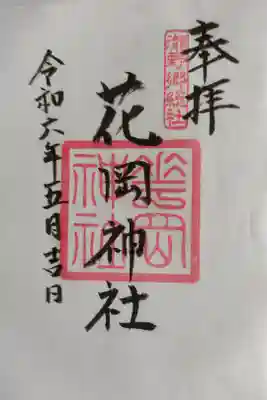 奉拝
花岡神社
花岡神社
令和六年五月吉日